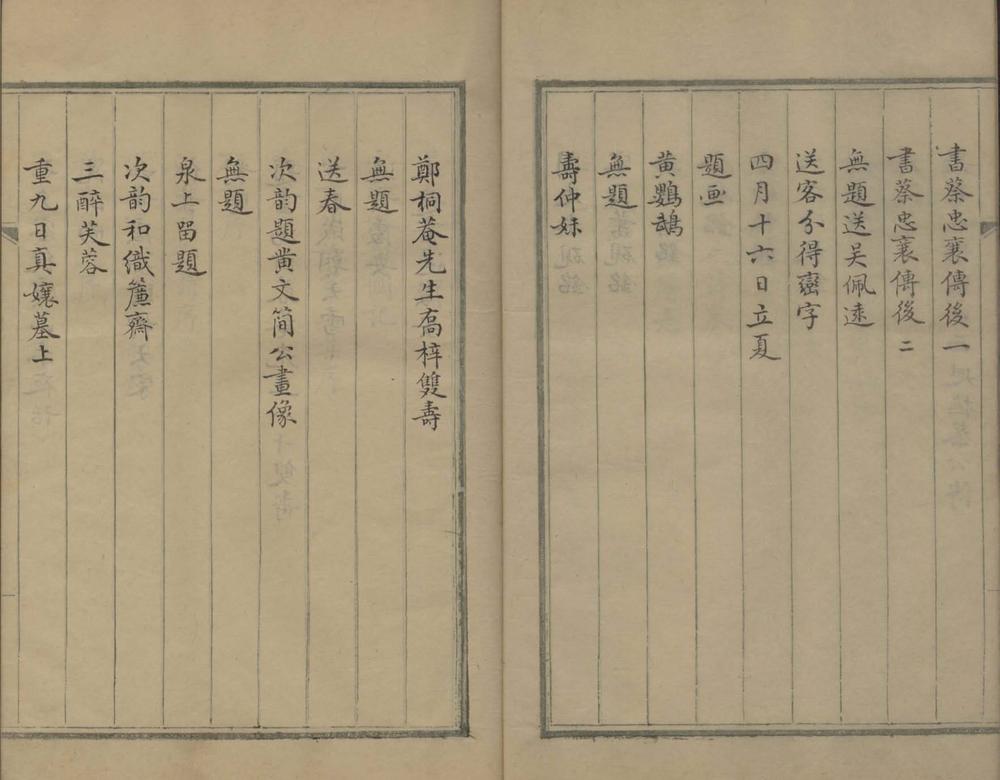 書蔡忠襄傳後一
書蔡忠襄傳後二
無題送吴佩遠
送客分得蠻字
四月十六日立夏
題画
黄鸚鵡
無題
壽仲妹
鄭桐菴先生喬梓雙壽
無題
送春
次韵題黄文简公畫像
無題
泉上留題
次韵和織簾齋
三醉芙蓉
重九日真孃墓上